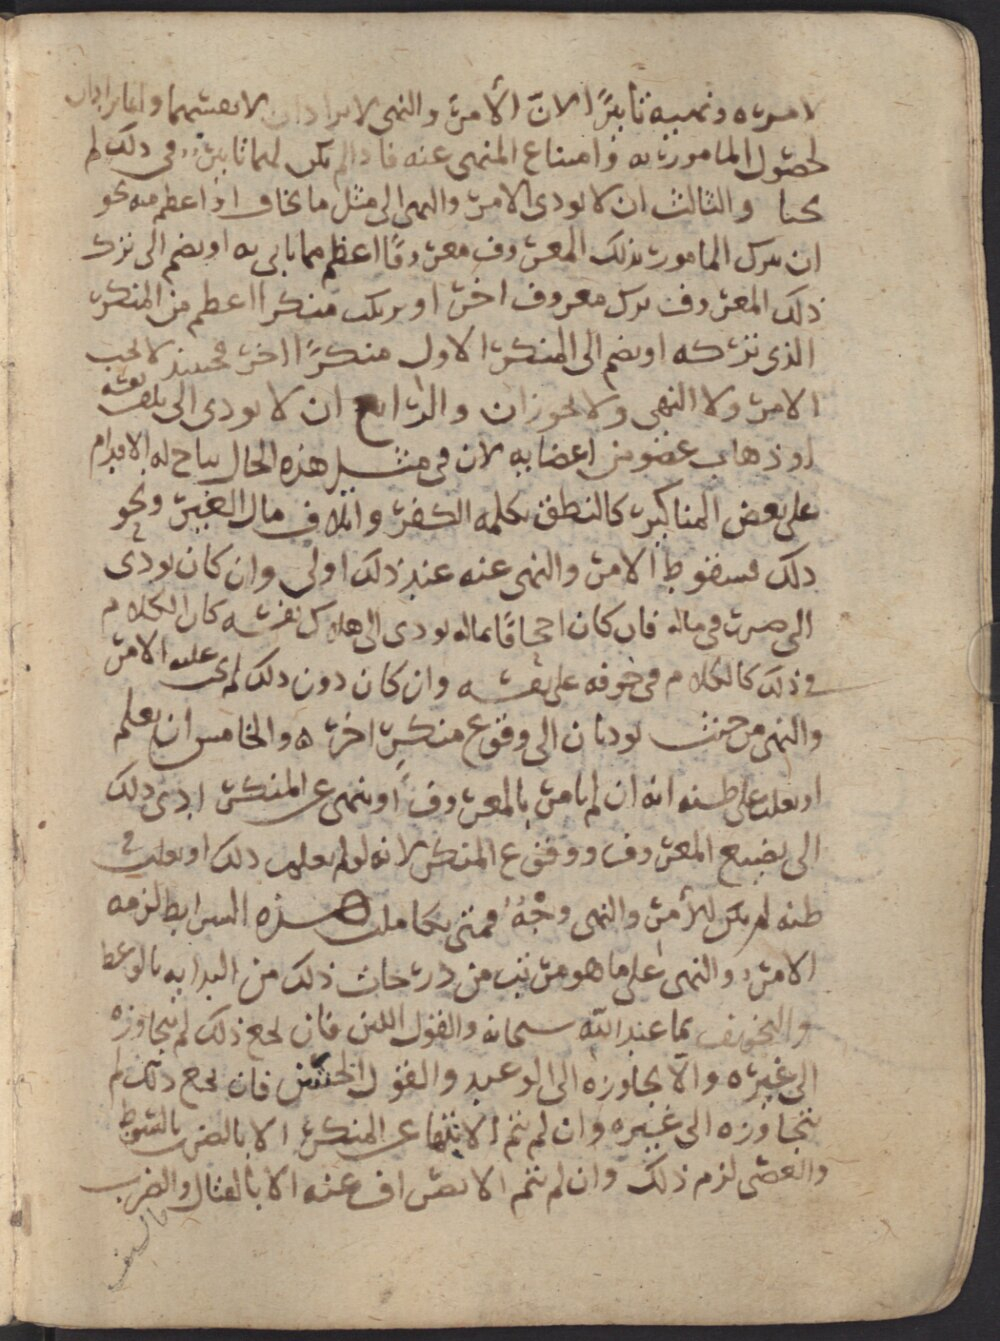 لامره ونهيه تاثيرًا لان الأمر والنهي لا يرادان لانفسهما وانما يرادان
لحصول المامور به وامتناع المنهي عنه فاذا لم يكن لهما تاثير في ذلك لم
يجبا والثالث ان لا يودي الامر والنهي الى مثل ما يخاف او اعظم منه نحو
ان يترك المامور بذلك المعروف معروفًا اعظم مما ياتي به او يضم الى ترك
ذلك المعروف ترك معروف اخر او يرتكب منكرا اعظم من المنكر
الذي تركه او يضم الى المنكر الاول منكرًا اخر فحينئذ لا يجب
الامر ولا النهي ولا يجوزان والرابع ان لا يودي الى تلف نفسه
او ذهاب عضو من اعضايه لان في مثل هذه الحال يباح له الاقدام
على بعض المناكير كالنطق بكلمه الكفر واتلاف مال الغير ونحو
ذلك فسقوط الامر والنهي عنه عند ذلك اولى وان كان يودي
الى ضرر في ماله فان كان اجحافًا بماله يودي الى هلاك نفسه كان الكلام
في ذلك كالكلام في خوفه على نفسه وان كان دون ذلك لم عليه الامر
والنهي من حيث يوديان الى وقوع منكر اخر ه والخامس ان يعلم
او يغلب على ظنه انه ان لم يامر بالمعروف او ينهى عن المنكر ادى ذلك
الى تضييع المعروف ووقوع المنكر لانه لو لم يعلم ذلك او يغلب في
ظنه لم يكن للأمر والنهي وجهٌ فمتى تكاملت هذه الشرايط لزمه
الامر والنهي على ما هو مرتب من درجات ذلك من البدايه بالوعظ
والتخويف بما عند الله سبحانه والقول اللين فان نجع ذلك لم يتجاوزه
الى غيره والا تجاوزه الى الوعيد والقول الخشن فان نجع ذلك لم
يتجاوزه الى غيره وان لم يتم الانتها عن المنكر الا بالضرب بالسوط
والعصى لزم ذلك وان لم يتم الانصراف عنه الا بالقتال والضرب
بالسيف